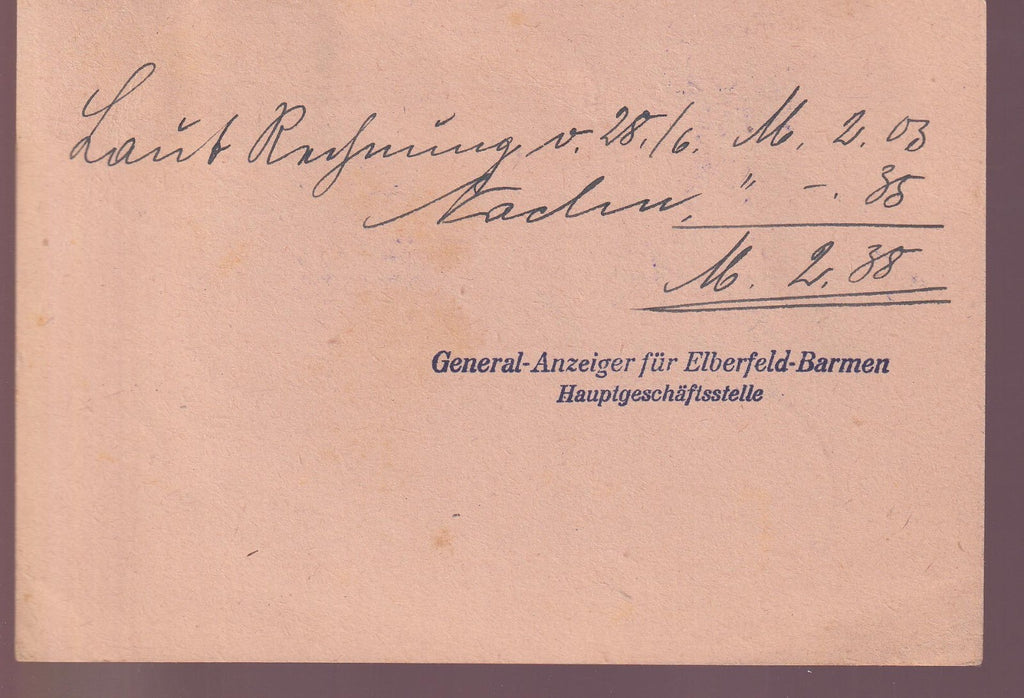 Laut Rechnung v. 28./6. M. 2.03
Nachn. " -. 35
M. 2.38
General-Anzeiger für Elberfeld-Barmen
Hauptgeschäftsstelle